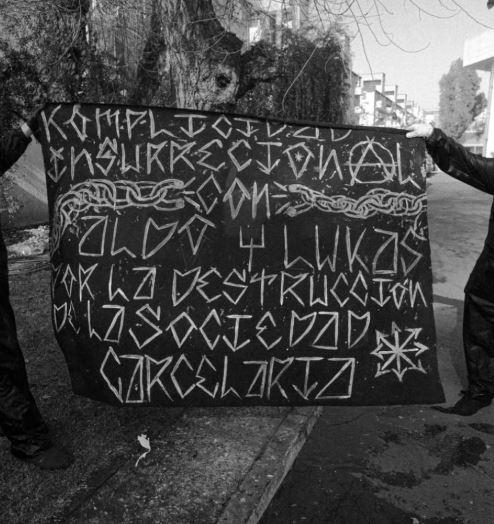 KOMPLICIDAD
INSURRECIONAL
CON
ALDO Y LUKAS
POR LA DESTRUCCIÓN
DE LA SOCIEDAD
CARCELARIA